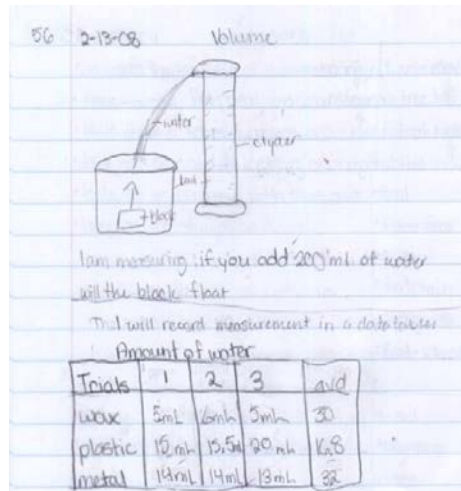 56 2-13-08 Volume
water
block
I am measuring: if you add 200 mL of water
will the block float
I will record measurement in a data table
Amount of water
Trials 1 2 3
wax 5mL 6mL 5mL 30
plastic 15mL 15.5mL 20mL
metal 14mL 14mL 13mL 32